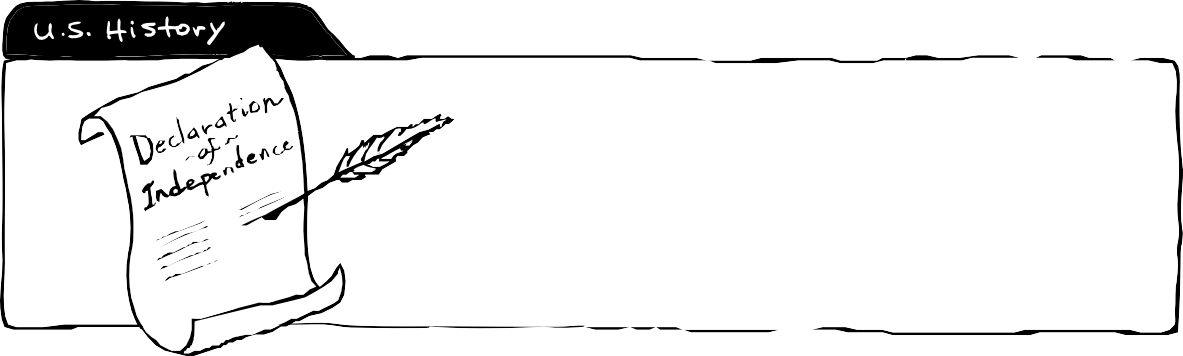 U.S. History
Declaration
~of~
Independence